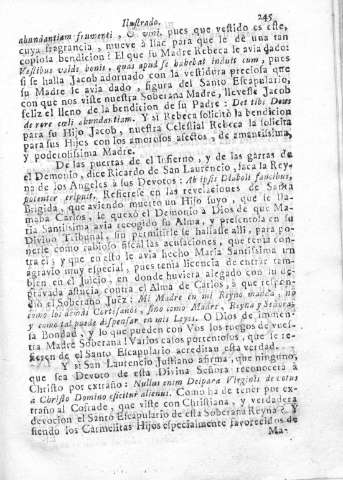 Ilustrado. 245
abundantiam frumenti, & vini, pues que vestido es este,
cuya fragrancia, mueve à Ilac para que le dè una tan
copiosa bendicion? El que su Madre Rebeca le avia dado:
Vestibus valdè bonis, quas apud se habebat induit eum, pues
si se halla Jacob adornado con la vestidura preciosa que
su Madre le avia dado, figura del Santo Escapulario
con que nos viste nuestra Soberana Madre, llevese Jacob
feliz el lleno de la bendicion de su Padre: Det tibi Deus
de rore cœli abundantiam. Y si Rebeca solicitò la bendicion
para su Hijo Jacob, nuestra Celestial Rebeca la solicita
para sus Hijos con los amorosos afectos, de amantissima,
y poderosissima Madre.
De las puertas del Infierno, y de las garras de
el Demonio, dice Ricardo de San Laurencio, saca la Reyna
de los Angeles à sus Devotos: Ab ipsis Diaboli faucibus,
potenter eripuit. Refierese en las revelaciones de Santa
Brigida, que aviendo muerto un Hijo suyo, que se llamaba
Carlos, se quexò el Demonio à Dios de que Maria
Santissima avia cogido su Alma, y presentola en su
Divino Tribunal, sin permitirle se hallasse alli, para ponerle
como rabioso fiscal las acusaciones, que tenia contra
el; y que en esto le avia hecho Maria Santissima un
agravio muy especial, pues tenia licencia de entrar tambien
en el Juicio, en donde huviera alegado con su depravada
astucia contra el Alma de Carlos, à que respondiò
el Soberano Juez: Mi Madre en mi Reyno manda, no
como los demàs Cortesanos, sino como Madre, Reyna y Señora,
y como tal puede dispensar en mis Leyes. O Dios de immensa
Bondad, y lo que pueden con Vos los ruegos de vuestra
Madre Soberana! Varios casos portentosos, que se refieren
de el Santo Escapulario acreditan esta verdad.
Y si San Laurencio Justiano afirma, que ninguno,
que sea Devoto de esta Divina Señora reconocerà à
Christo por extraño: Nullus enim Deipara Virginis devotus
a Christo Domino efficitur alienus. Como ha de tener por extraño
al Cofrade, que viste con Christiana, y verdadera
devocion el Santo Escapulario de esta Soberana Reyna? Y
siendo los Carmelitas Hijos especialmente favorecidos de
Ma-